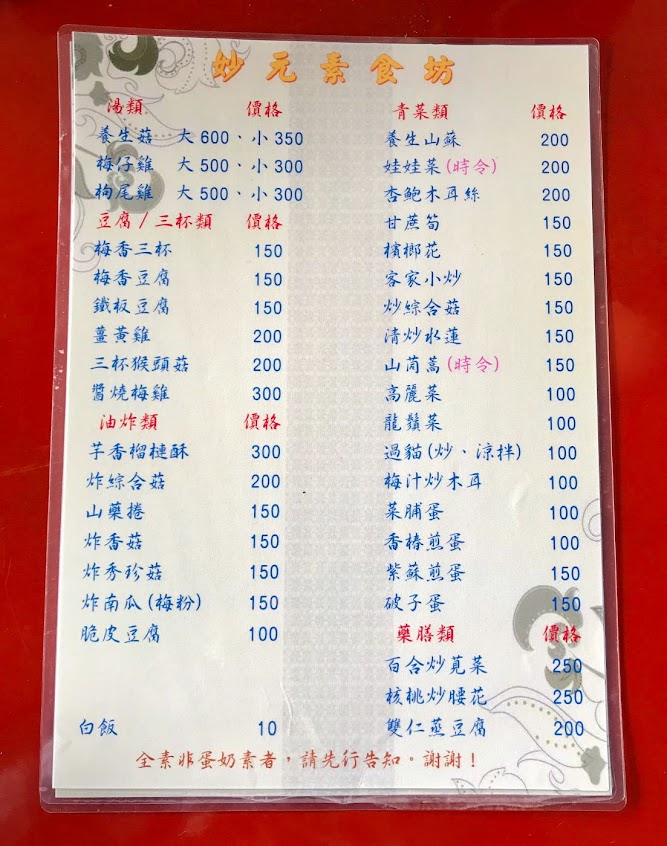 妙元素食坊
湯類 價格
養生菇 大600、小350
梅仔雞 大500、小300
枸尾雞 大500、小300
豆腐/三杯類 價格
梅香三杯 150
梅香豆腐 150
鐵板豆腐 150
薑黃雞 200
三杯猴頭菇 200
醬燒梅雞 300
油炸類 價格
芋香榴槤酥 300
炸綜合菇 200
山藥捲 150
炸香菇 150
炸秀珍菇 150
炸南瓜(梅粉) 150
脆皮豆腐 100
白飯 10
青菜類 價格
養生山蘇 200
娃娃菜(時令) 200
杏鮑木耳絲 200
甘蔗筍 150
檳榔花 150
客家小炒 150
炒綜合菇 150
清炒水蓮 150
山茼蒿(時令) 150
高麗菜 100
龍鬚菜 100
過貓(炒、涼拌) 100
梅汁炒木耳 100
菜脯蛋 100
香椿煎蛋 100
紫蘇煎蛋 150
破子蛋 150
藥膳類 價格
百合炒莧菜 250
核桃炒腰花 250
雙仁蒸豆腐 200
全素非蛋奶素者，請先行告知。謝謝！